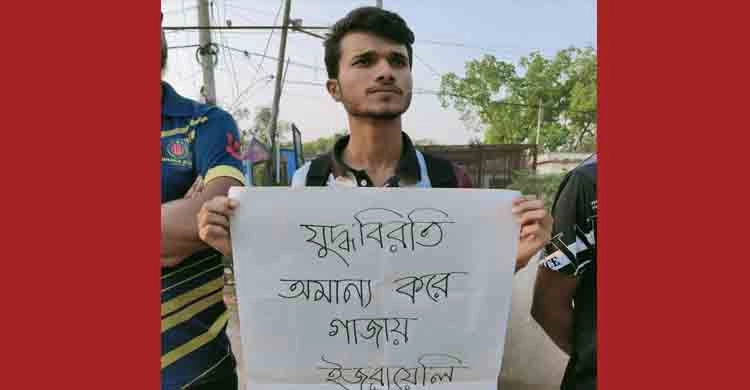 যুদ্ধবিরতি
অমান্য করে
গাজায়
ইজরায়েলি